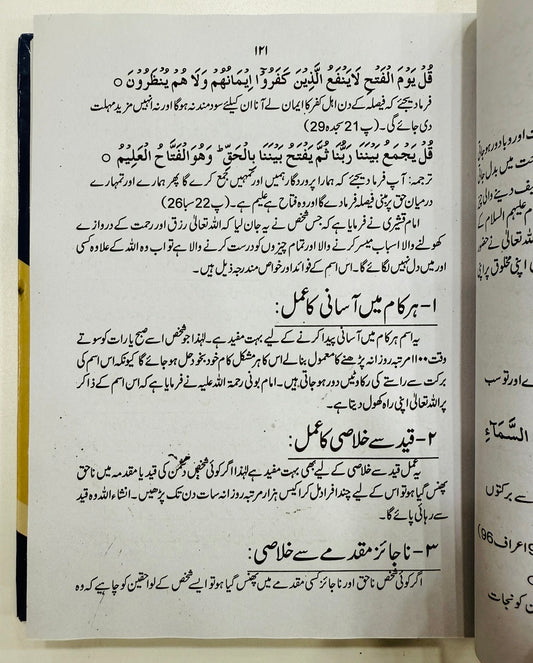 ۱۲۱
قُلْ يَوْمَ الْفَتْحِ لَا يَنْفَعُ الَّذِيْنَ كَفَرُوْٓا اِيْمَانُهُمْ وَلَا هُمْ يُنْظَرُوْنَ ○
فرما دیجئے کہ فیصلہ کے دن اہل کفر کا ایمان لے آنا ان کیلئے سود مند نہ ہوگا اور نہ انہیں مزید مہلت
دی جائے گی۔ (پ 21 سجدہ 29)
قُلْ يَجْمَعُ بَيْنَنَا رَبُّنَا ثُمَّ يَفْتَحُ بَيْنَنَا بِالْحَقِّ ؕ وَهُوَ الْفَتَّاحُ الْعَلِيْمُ ○
ترجمہ: آپ فرما دیجئے کہ ہمارا پروردگار ہمیں اور تمہیں جمع کرے گا پھر ہمارے اور تمہارے
درمیان حق پر مبنی فیصلہ فرمادے گا اور وہ فتاح ہے علیم ہے۔ (پ 22 سبا 26)
امام قشیری نے فرمایا ہے کہ جس شخص نے یہ جان لیا کہ اللہ تعالیٰ رزق اور رحمت کے دروازے
کھولنے والا اسباب میسر کرنے والا اور تمام چیزوں کو درست کرنے والا ہے تو اب وہ اللہ کے علاوہ کسی
اور میں دل نہیں لگائے گا۔ اس اسم کے فوائد اور خواص مندرجہ ذیل ہیں۔
۱- ہر کام میں آسانی کا عمل:
یہ اسم ہر کام میں آسانی پیدا کرنے کے لیے بہت مفید ہے۔ لہٰذا جو شخص اسے صبح یا رات کو سوتے
وقت ۱۱۰۰ مرتبہ روزانہ پڑھنے کا معمول بنالے اس کا ہر مشکل کام خود بخود حل ہو جائے گا کیونکہ اس اسم کی
برکت سے راستے کی رکاوٹیں دور ہو جاتی ہیں۔ امام بونی رحمۃ اللہ علیہ نے فرمایا ہے کہ اس اسم کے ذاکر
پر اللہ تعالیٰ اپنی راہ کھول دیتا ہے۔
۲- قید سے خلاصی کا عمل:
یہ عمل قید سے خلاصی کے لیے بھی بہت مفید ہے لہٰذا اگر کوئی شخص دشمن کی قید یا مقدمہ میں ناحق
پھنس گیا ہو تو اس کے لیے چند افراد مل کر اکیس ہزار مرتبہ روزانہ سات دن تک پڑھیں۔ انشاء اللہ وہ قید
سے رہائی پائے گا۔
۳- ناجائز مقدمے سے خلاصی:
اگر کوئی شخص ناحق اور ناجائز کسی مقدمے میں پھنس گیا ہو تو ایسے شخص کے لواحقین کو چاہیے کہ وہ
ت اور وبا دور ہو جاتی
حت میں بدل جاتی
م علیہم السلام کے
اللہ تعالیٰ نے حضور
اپنی مخلوق پر اپنی
ے اور تو سب
السَّمَآءِ
سے برکتوں
اعراف 96)
ن کو نجات